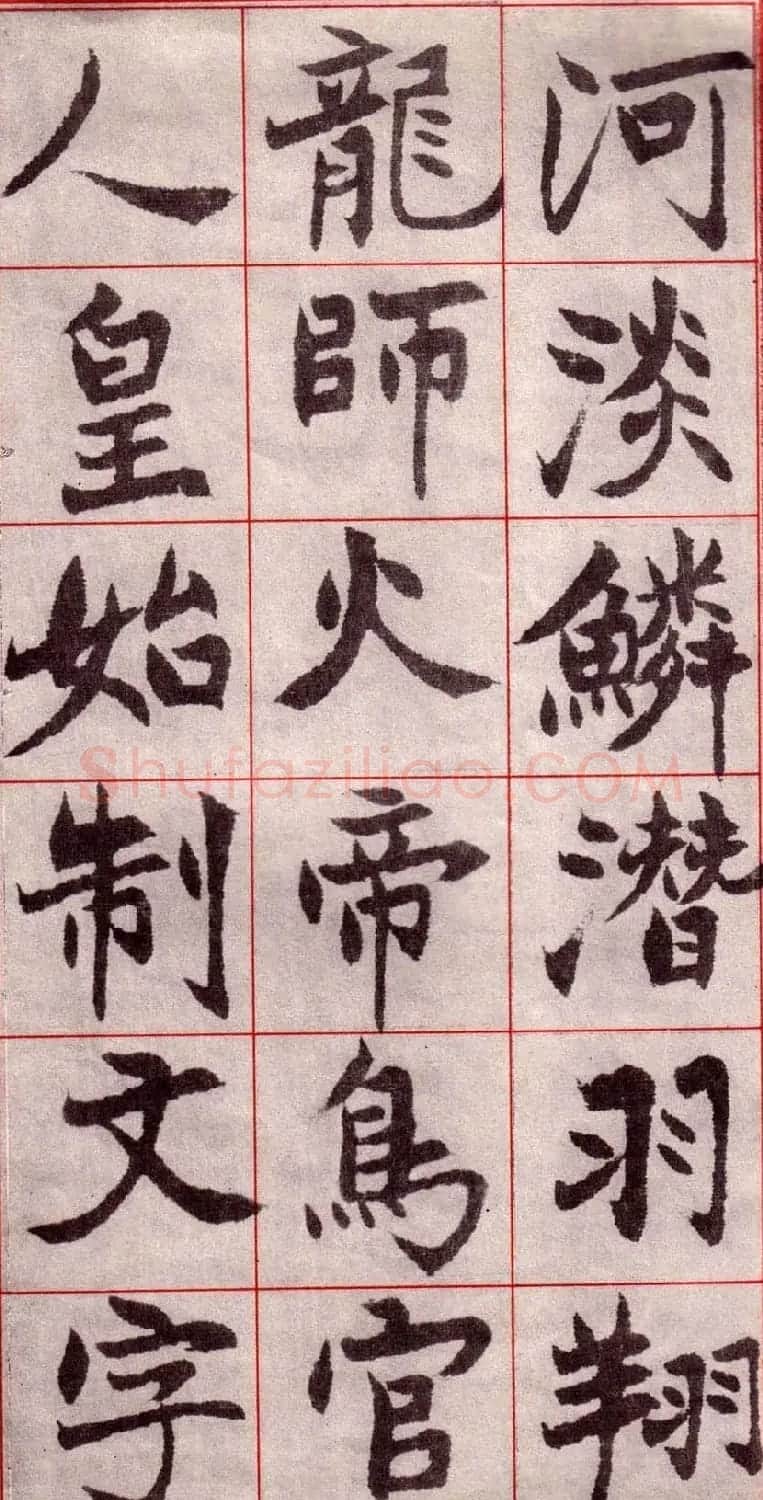 河淡鱗潛羽翔
龍師火帝鳥官
人皇始制文字
Shufaziliao.COM